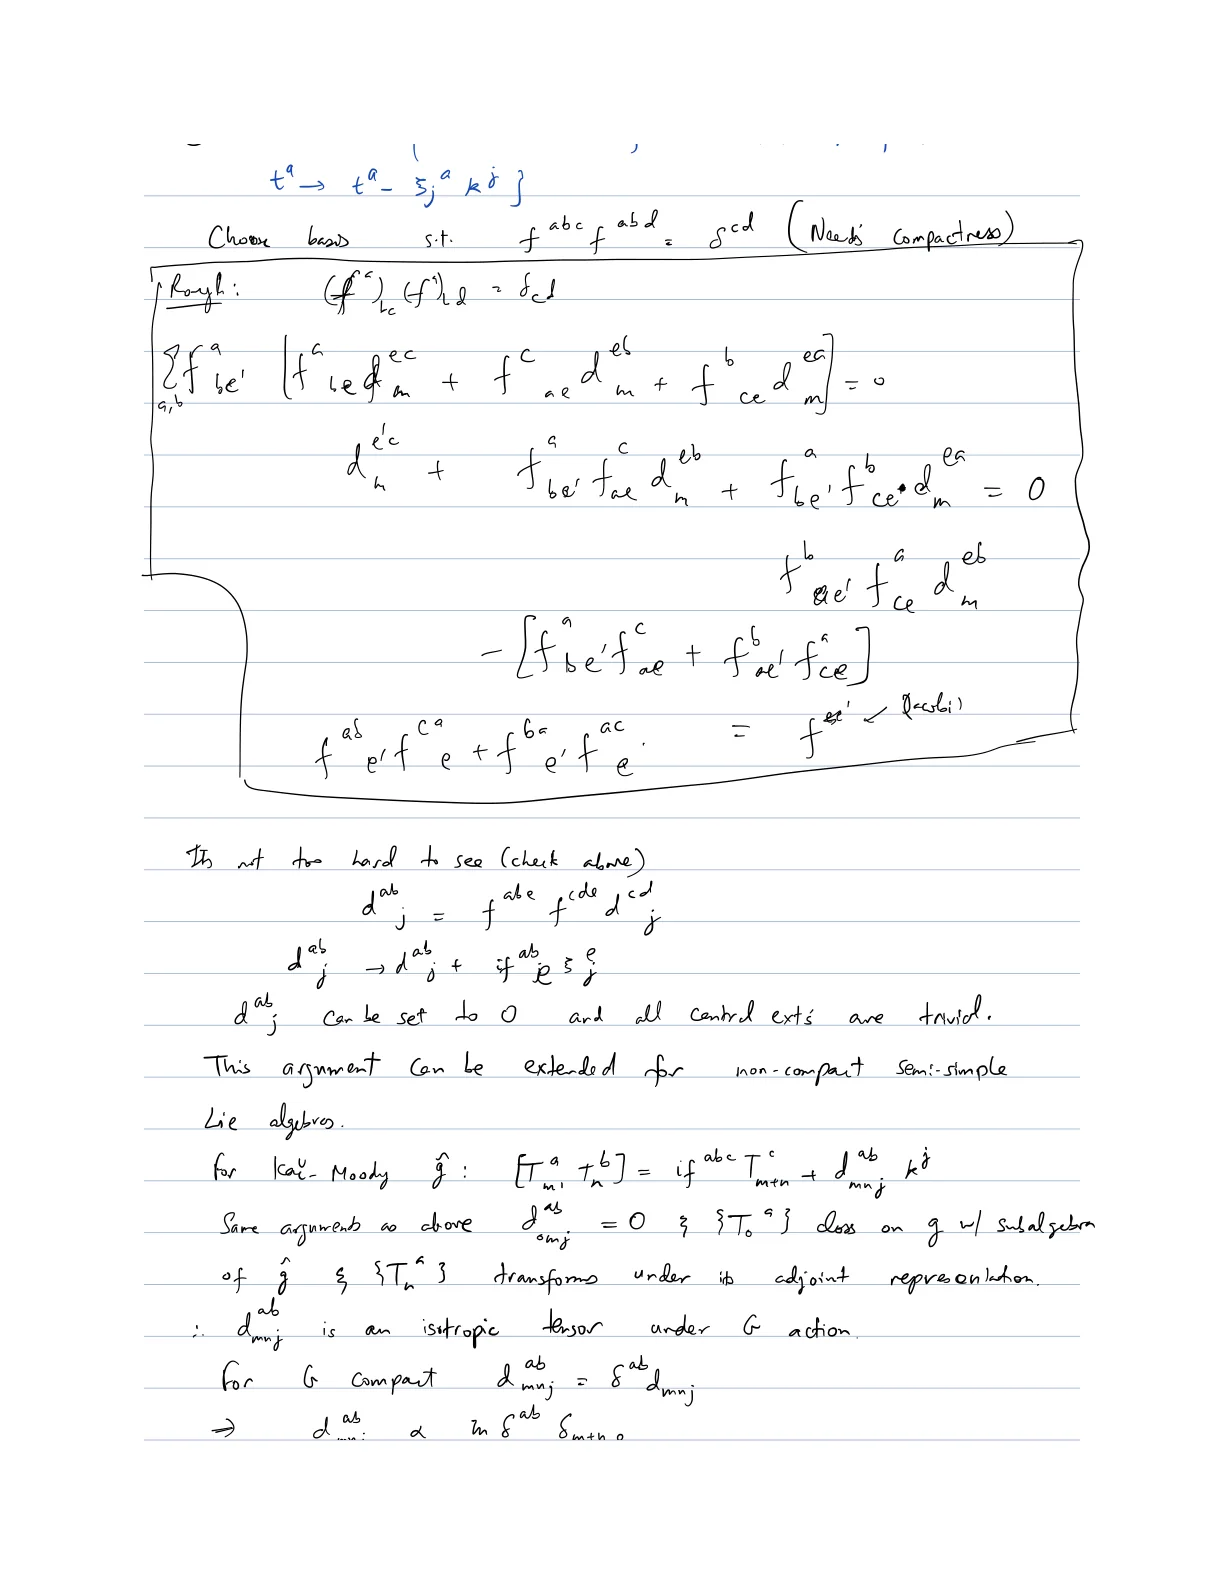 t^a → t^a - ξ_j^a k^j }
Choose basis s.t. f^{abc} f^{abd} = δ^{cd} (Needs compactness)
Rough: (f^a)_{bc} (f^a)_{bd} = δ_{cd}
Σ_{a,b} f^a_{be'} [f^a_{be} d^{ec}_m + f^c_{ae} d^{eb}_m + f^b_{ce} d^{ea}_m] = 0
d^{e'c}_m + f^a_{be'} f^c_{ae} d^{eb}_m + f^a_{be'} f^b_{ce} d^{ea}_m = 0
f^b_{ae'} f^a_{ce} d^{eb}_m
- [f^a_{be'} f^c_{ae} + f^b_{ae'} f^a_{ce}]
f^{ab}_{e'} f^{ca}_e + f^{ba}_{e'} f^{ac}_e = f^{ee'} ✓ (Jacobi)
Its not too hard to see (check above)
d^{ab}_j = f^{abe} f^{cde} d^{cd}_j
d^{ab}_j → d^{ab}_j + if^{ab}_e ξ^e_j
d^{ab}_j can be set to 0 and all central exts are trivial.
This argument can be extended for non-compact semi-simple
Lie algebras.
For Kač-Moody ĝ : [T^a_m, T^b_n] = if^{abc} T^c_{m+n} + d^{ab}_{mnj} k^j
Same arguments as above d^{ab}_{0mj} = 0 & {T_0^a} closes on g w/ subalgebra
of ĝ & {T_n^a} transforms under its adjoint representation.
∴ d^{ab}_{mnj} is an isotropic tensor under G action.
For G compact d^{ab}_{mnj} = δ^{ab} d_{mnj}
⇒ d^{ab}_{mnj} α m δ^{ab} δ_{m+n,0}